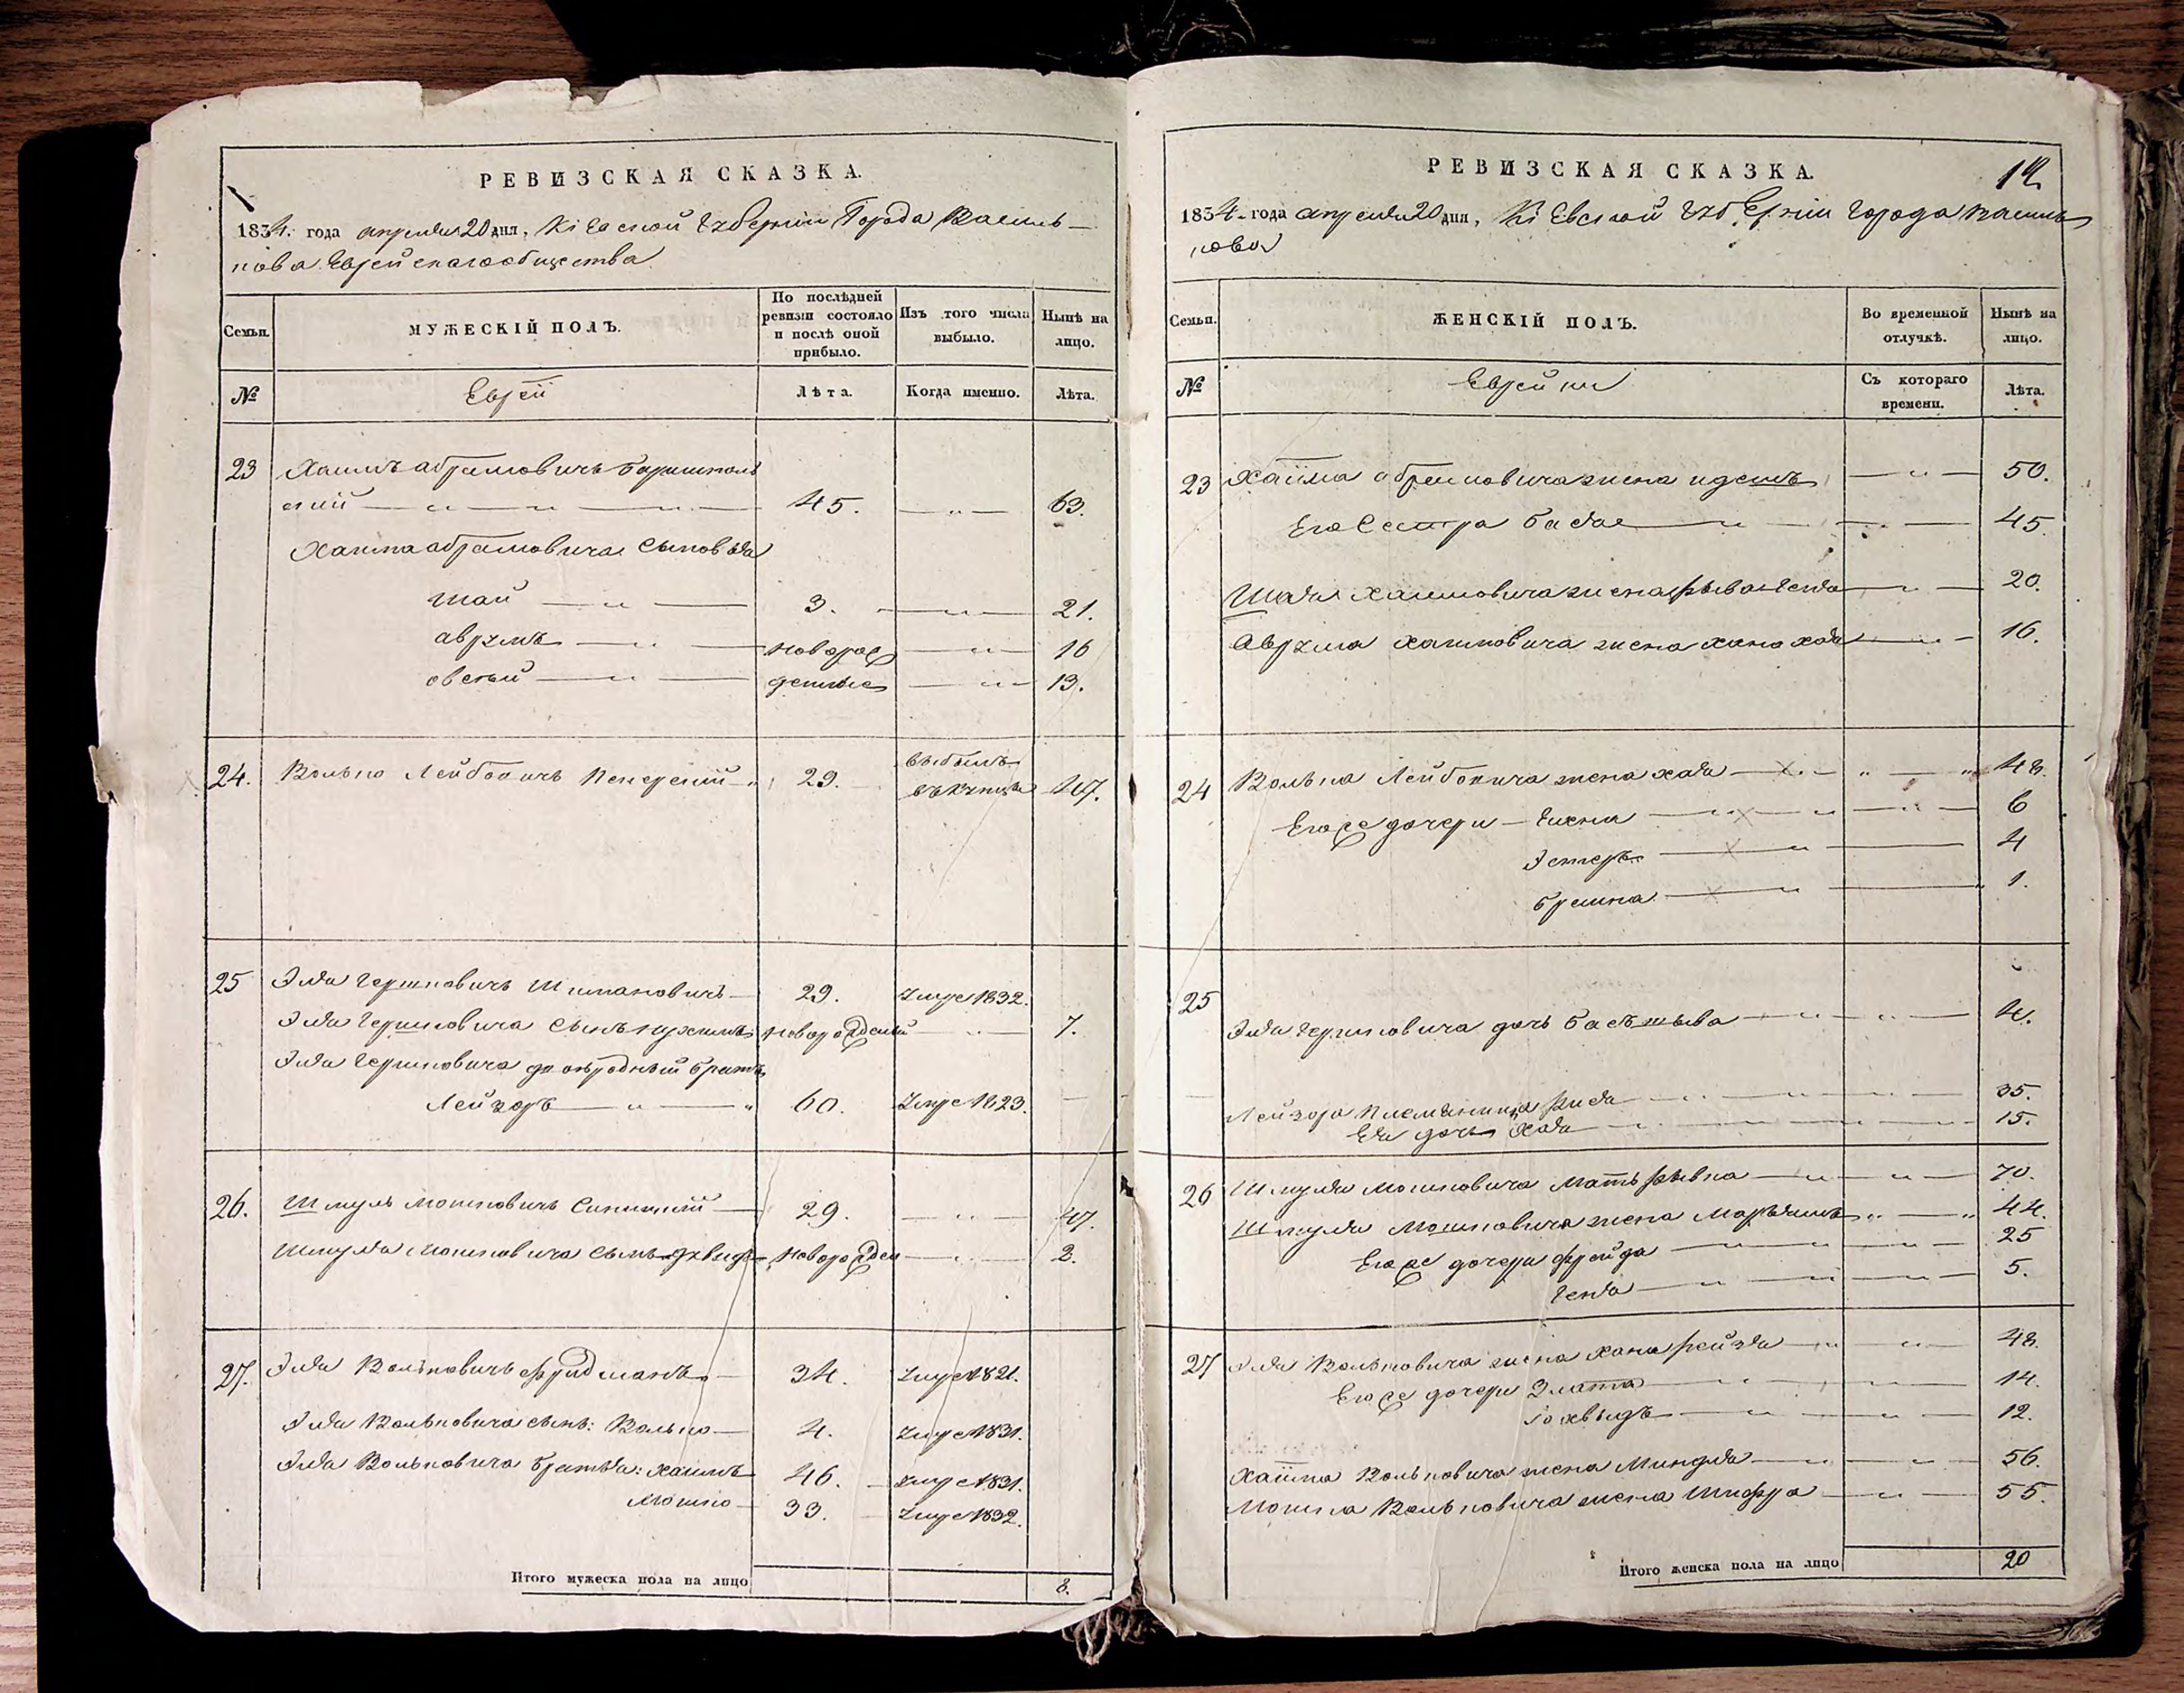 РЕВИЗСКАЯ СКАЗКА.
1834. года апреля 20 дня, Кіевской Губерніи Города Василь-
кова Еврейскаго общества
Семьи. МУЖЕСКІЙ ПОЛЪ. По послѣдней ревизіи состояло и послѣ оной прибыло. Изъ того числа выбыло. Нынѣ на лицо.
№ Еврей Лѣта. Когда именно. Лѣта.
23 Хаимъ Абрамовичь Баришполь
скій 45. 63.
Хаима Абрамовича Сыновья
Шай 3. 21.
Аврумъ новорож 16
Овсей денные 13.
24. Волько Лейбовичъ 29. выбылъ 47.
25 Эля Гершковичь 29. Умре 1832.
Эля Гершковича сынъ Нухимъ новорожденый 7.
Эля Гершковича двоюродный братъ
Лейзоръ 60. Умре 1823.
26. Шмуль Мошковичь 29. 47.
Шмуля Мошковича сынъ новорожден 2.
27. Эля Вольковичь Фридманъ 34. Умре 1821.
Эля Вольковича сынъ: Волько 4. Умре 1831.
Эля Вольковича братья: Хаимъ 46. Умре 1831.
Мошко 33. Умре 1832.
Итого мужеска пола на лицо 8.
РЕВИЗСКАЯ СКАЗКА.
1834. года апреля 20 дня, Кіевской Губерніи Города Василь
кова
Семьи. ЖЕНСКІЙ ПОЛЪ. Во временной отлучкѣ. Нынѣ на лицо.
№ Еврейки Съ котораго времени. Лѣта.
23 Хаима Абрамовича жена 50.
Его Сестра Бася 45.
Шая Хаимовича жена 20.
Аврума Хаимовича жена Хана Хая 16.
24 Волька Лейбовича жена Хая 48.
Его же дочери 6
Эстеръ 4
1.
25 Эля Гершковича дочь Басъшива 4.
Лейзора племянница 35.
Ея дочь Хая 15.
26 Шмуля Мошковича Мать Ривка 70.
Шмуля Мошковича жена Марьямъ 44.
Его же дочери Фрейда 25
Геня 5.
27 Эля Вольковича жена Хана Рейзя 48.
Его же дочери Злата 14.
12.
Хаима Вольковича жена Миндля 56.
Мошка Вольковича жена Шифра 55.
Итого женска пола на лицо 20